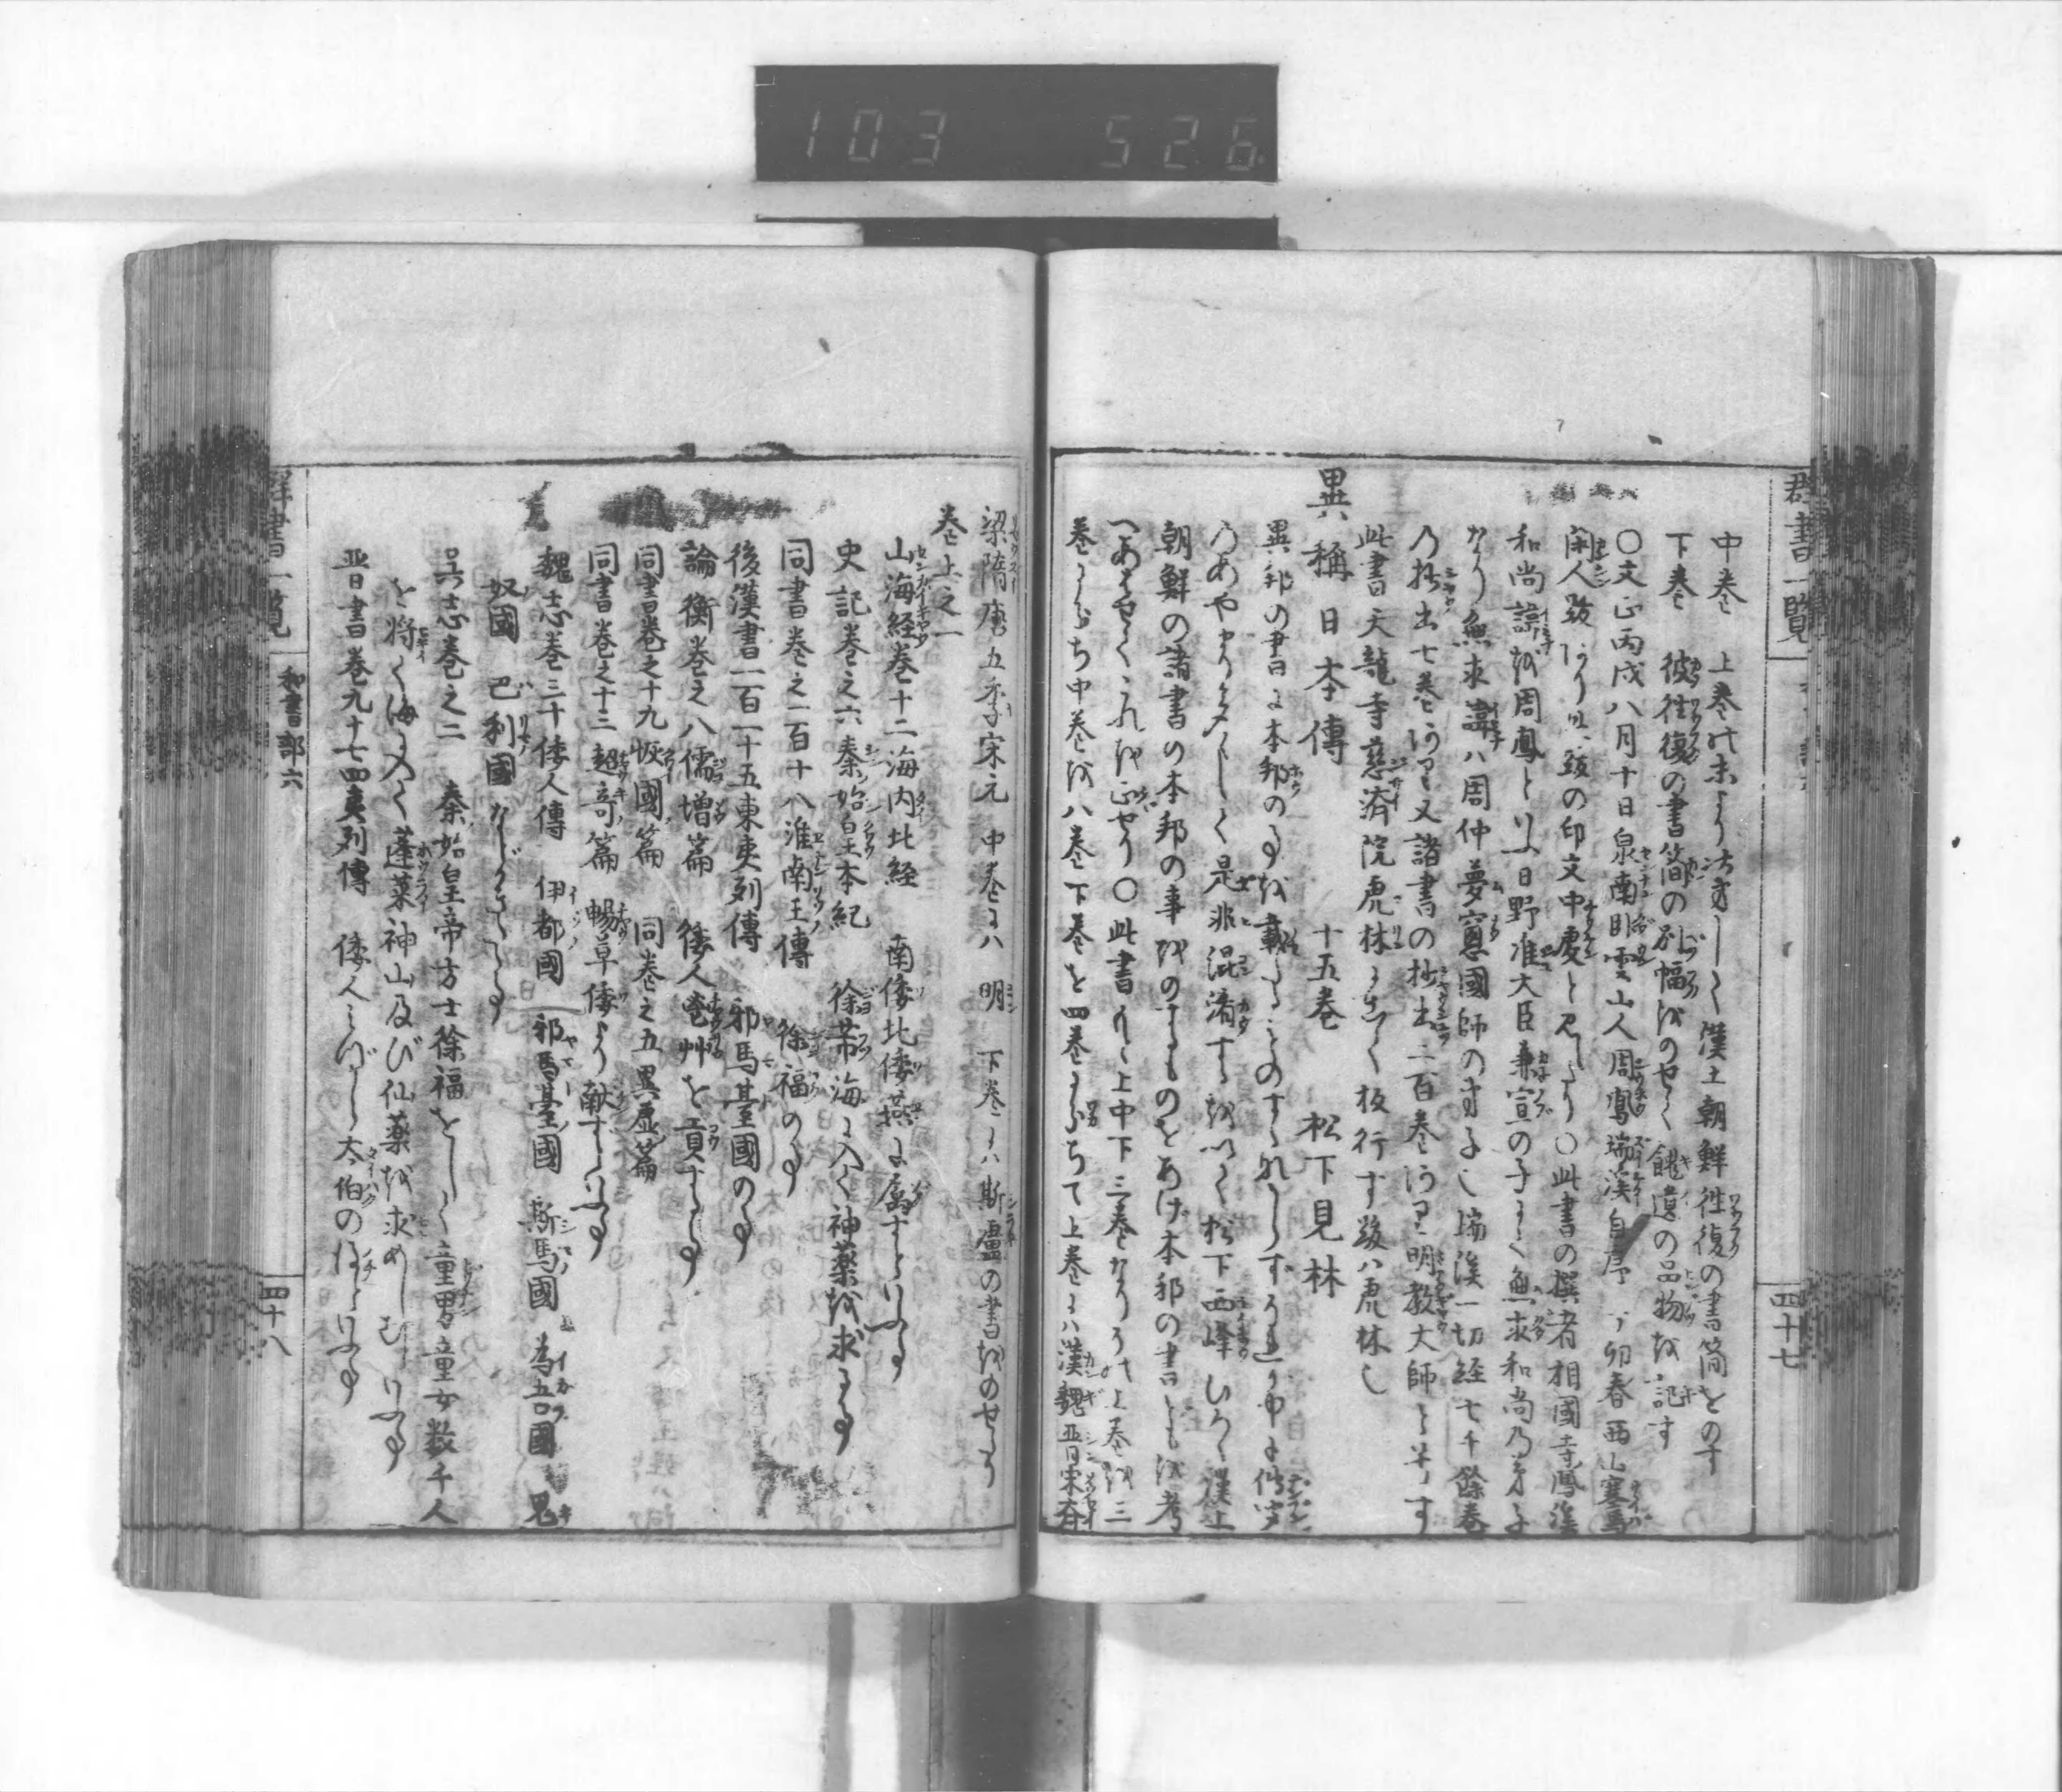 103 526
群書一覧
四十七
中巻 上巻の末より つゞきて漢土朝鮮往復の書簡をのす
下巻 彼往復の書簡の別幅をのせて餽遺の品物を記す
〇文正丙戌八月十日泉南臥雲山人周鳳瑞渓自序 丁卯春西山塞馬
閑人跋あり此跋の印文中慶と見えたり〇此書の撰者相國寺鳳渓
和尚諱を周鳳といふ日野准大臣兼宣の子にて無求和尚乃弟子
なり無求諱ハ周仲夢窓國師の弟子也瑞渓一切経七千餘巻
乃抄出七巻あり又諸書の抄出二百巻あり明教大師と号す
此書天龍寺慈済院虎林にて板行す跋ハ虎林也
異稱日本傳 十五巻 松下見林
異邦の書に本邦の事を載ることのすくなからず
のあやまり多くして是非混淆するを以て松下西峰ひろく漢土
朝鮮の諸書の本邦の事をのするものをあげ本邦の書ともを考
へあはせてこれを正せり〇此書すべて上中下三巻なりその上巻を三
巻にわかち中巻を八巻下巻を四巻にわかちて上巻にハ漢魏晋宋斉
梁隋唐五季宋元 中巻にハ明 下巻にハ斯盧の書をのせたり
巻上之一
山海経巻十二海内北経 南倭北倭燕に属すといふ事
史記巻之六秦始皇本紀 徐芾海に入て神薬を求る事
同書巻之一百十八淮南王傳 徐福の事
後漢書一百一十五東夷列傳 邪馬臺國の事
論衡巻之八儒増篇 倭人鬯艸を貢する事
同書巻之十九恢國篇 同巻之五異虚篇
同書巻之十三超奇篇 暢草倭より献ずといふ事
魏志巻三十倭人傳 伊都國 邪馬臺國 斯馬國 為吾國 鬼
奴國 巴利國などの事
呉志巻之二 秦始皇帝方士徐福をして童男童女数千人
を将て海に入て蓬莱神山及び仙薬を求めしむといふ事
晋書巻九十七四夷列傳 倭人みづから大伯の後といふ事
群書一覧
和書部六
四十八